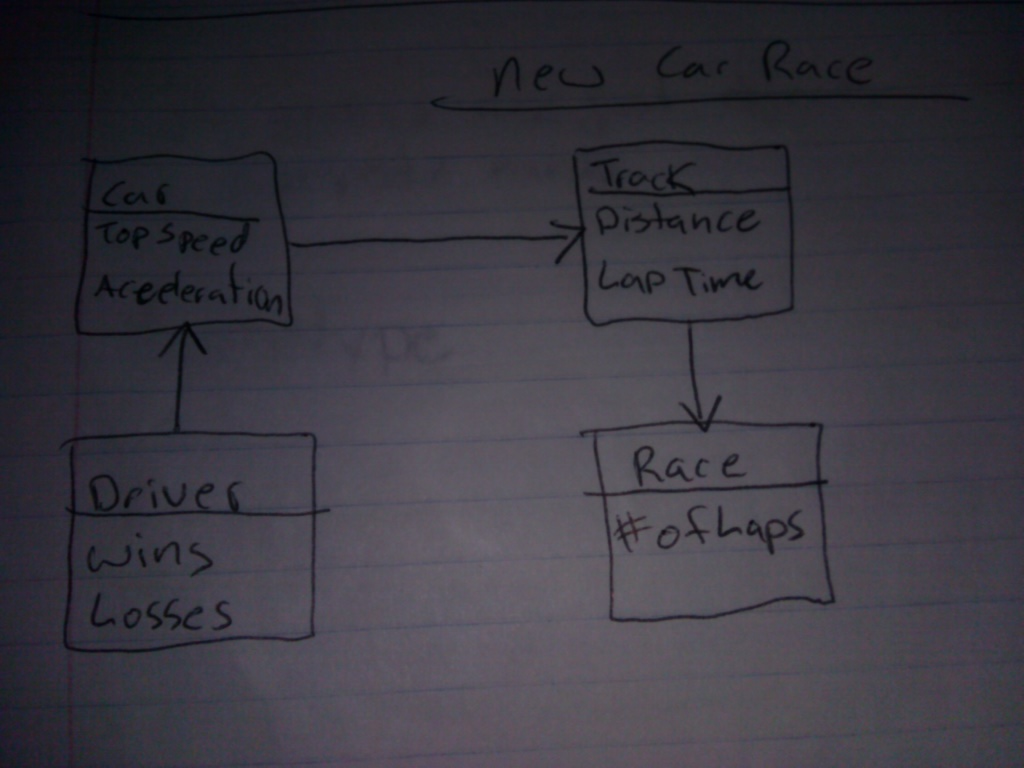 New Car Race
Car
Top Speed
Aceeleration
Track
Distance
Lap Time
Driver
Wins
Losses
Race
# of Laps